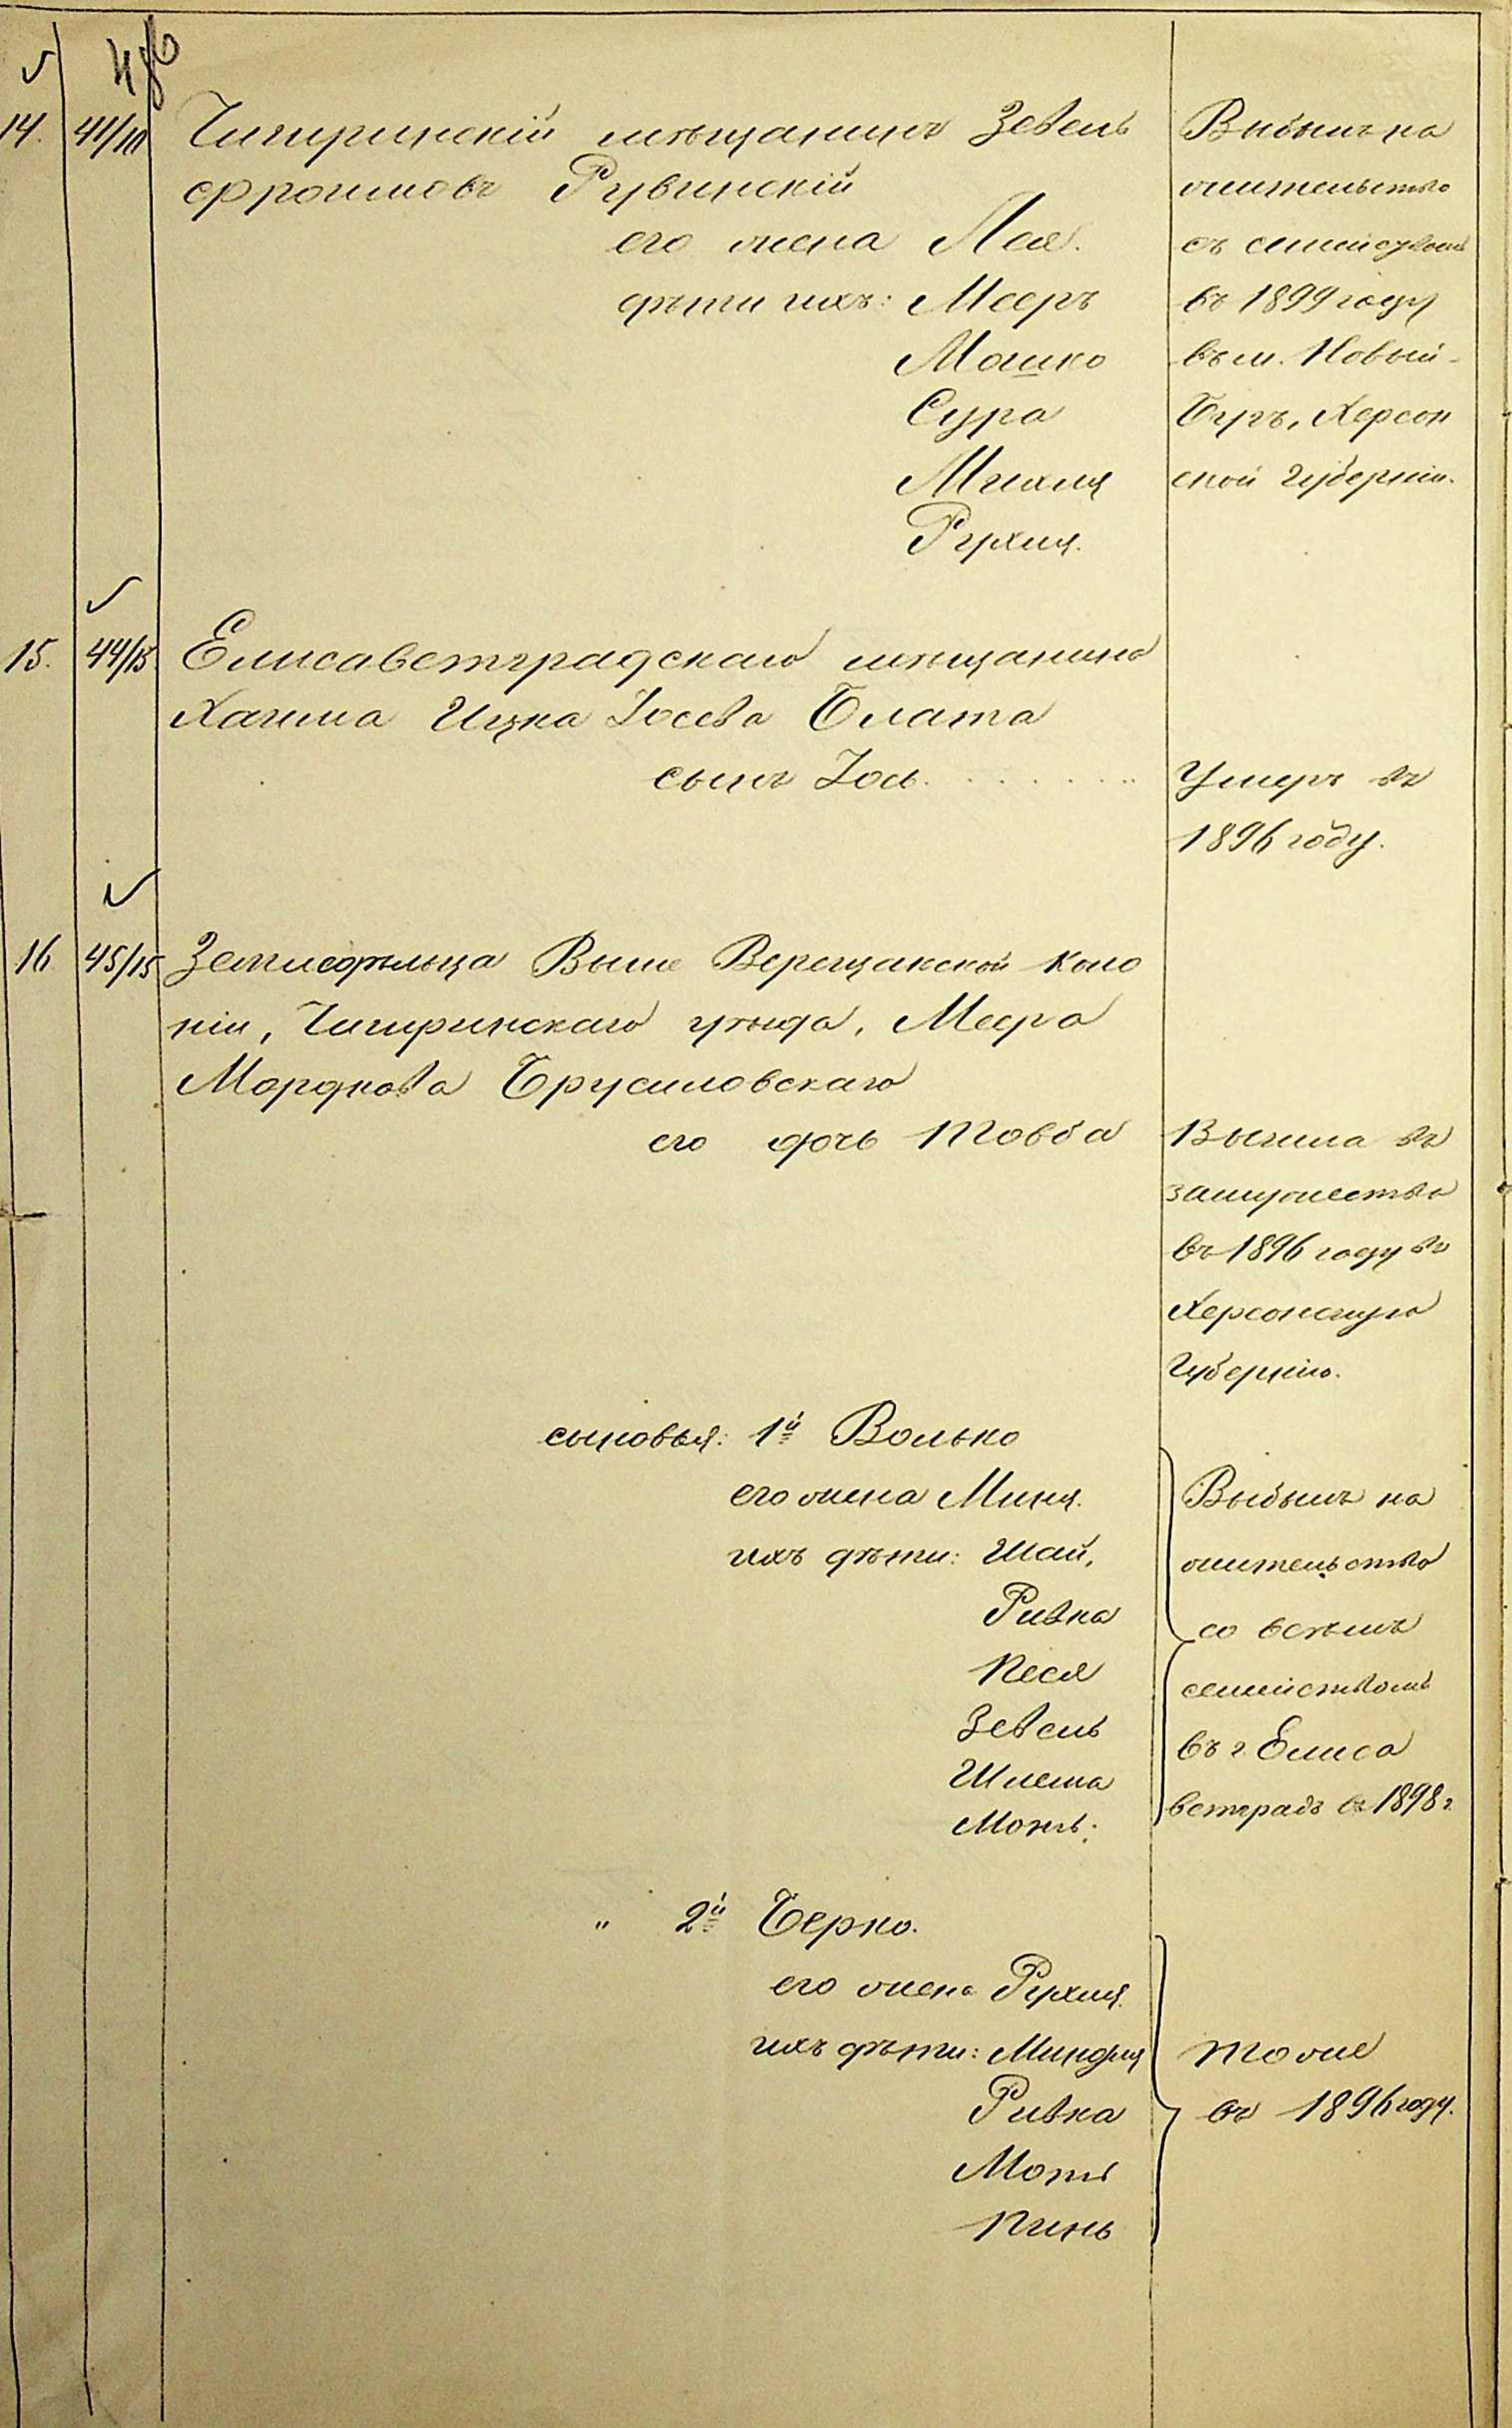 14. 41/10 Чигиринскій мѣщанинъ Зевель
Фроимовъ Рувинскій
его жена Лея.
дѣти ихъ: Мееръ
Мошко
Сура
Михля
Рухля.
Выбылъ на
жительство
съ семействомъ
въ 1899 году
въ м. Новый-
Бугъ, Херсон
ской Губерніи.
15. 44/15 Елисаветградскаго мѣщанина
Хаима Ицка Іосева Блата
сынъ Іось.
Умеръ въ
1896 году.
16 45/15 Земледѣльца Выше Верещакской коло
ніи, Чигиринскаго уѣзда, Меера
Мордкова Брусиловскаго
его дочь Товба
Вышла въ
замужество
въ 1896 году въ
Херсонскую
Губернію.
сыновья: 1й Волько
его жена Миня.
ихъ дѣти: Шая,
Ривка
Песя
Зевель
Шлема
Моть.
Выбылъ на
жительство
со всѣмъ
семействомъ
въ г. Елиса
ветградъ въ 1898 г.
" 2й Берко.
его жена Рухля.
ихъ дѣти: Миндля
Ривка
Моть
Пинь
тоже
въ 1896 году.